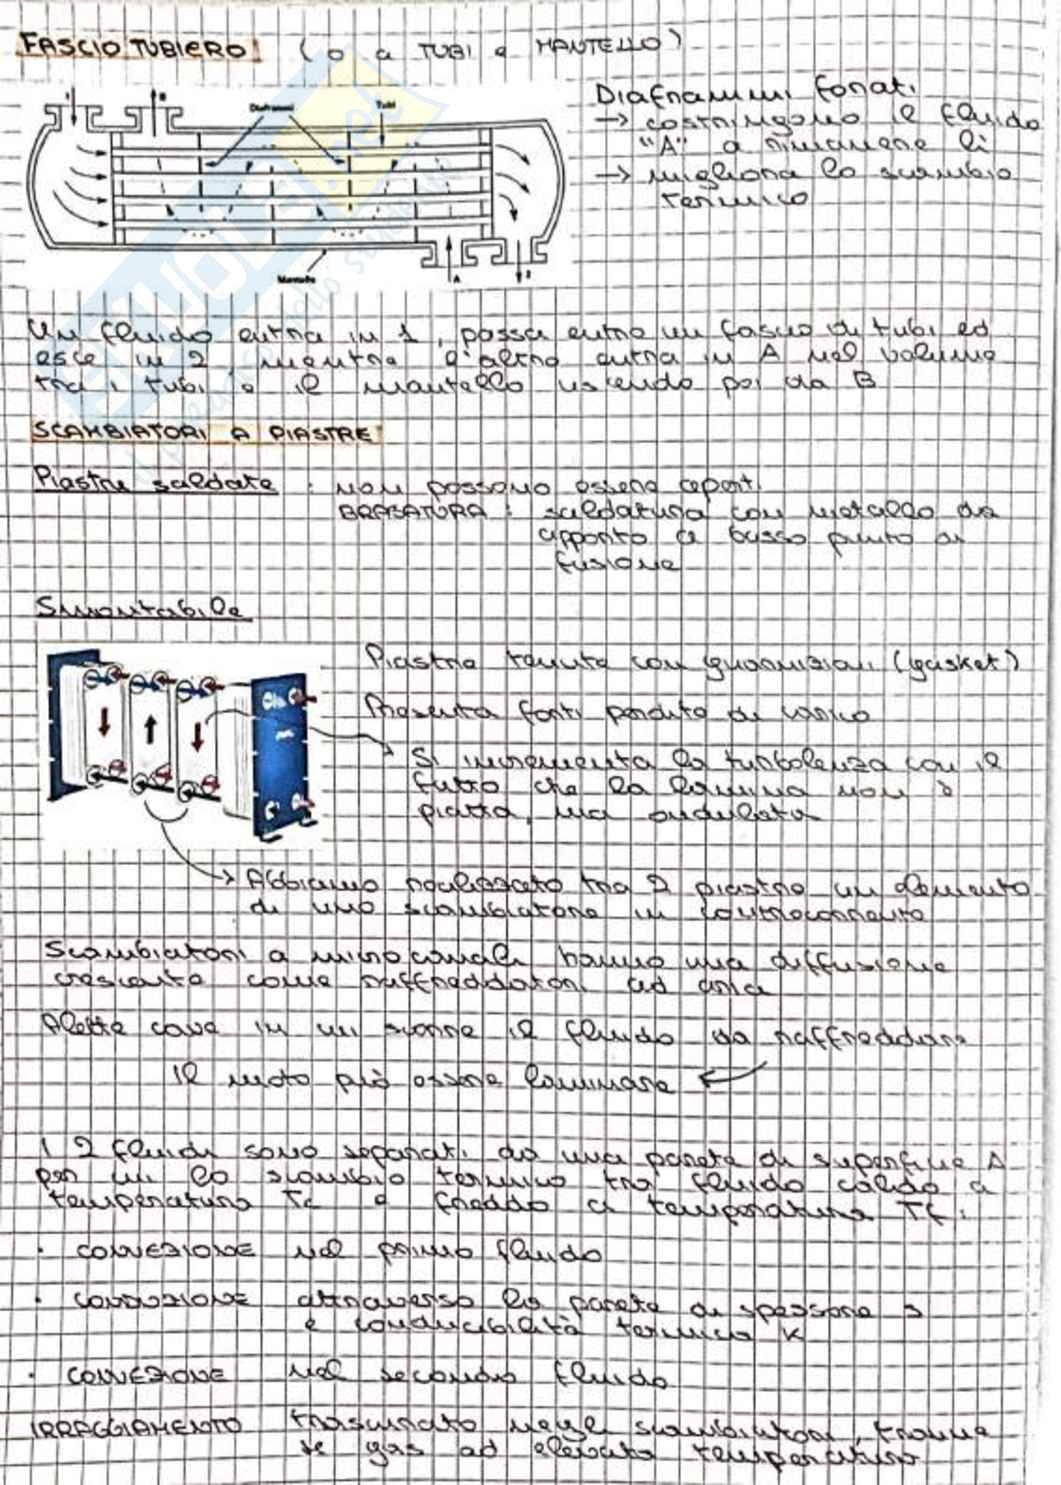 FASCIO TUBIERO! (o a TUBI e MANTELLO)
Diaframmi forati
→ costringono il fluido
"A" a rimanere lì
→ migliora lo scambio
termico
1 B
Diaframmi Tubi
Mantello A 2
Un fluido entra in 1, passa entro un fascio di tubi ed
esce in 2, mentre l'altro entra in A nel volume
tra i tubi e il mantello uscendo poi da B
SCAMBIATORI A PIASTRE!
Piastre saldate : non possono essere aperti
BRASATURA : saldatura con metallo da
apporto a basso punto di
fusione
Smontabile
Piastre tenute con guarnizioni (gasket)
Presenta forti perdite di carico
Si incrementa la turbolenza con il
fatto che la lamina non è
piatta, ma ondulata
→ Abbiamo realizzato tra 2 piastre un elemento
di uno scambiatore in controcorrente
Scambiatori a microcanali hanno una diffusione
crescente come raffreddatori ad aria
Alette cave in cui scorre il fluido da raffreddare
Il moto può essere laminare ←
I 2 fluidi sono separati da una parete di superficie A
per cui lo scambio termico tra fluido caldo a
temperatura Tc e freddo a temperatura Tf:
· CONVEZIONE nel primo fluido
· CONDUZIONE attraverso la parete di spessore s
e conducibilità termica K
· CONVEZIONE nel secondo fluido
IRRAGGIAMENTO trascurato negli scambiatori, tranne
se gas ad elevata temperatura